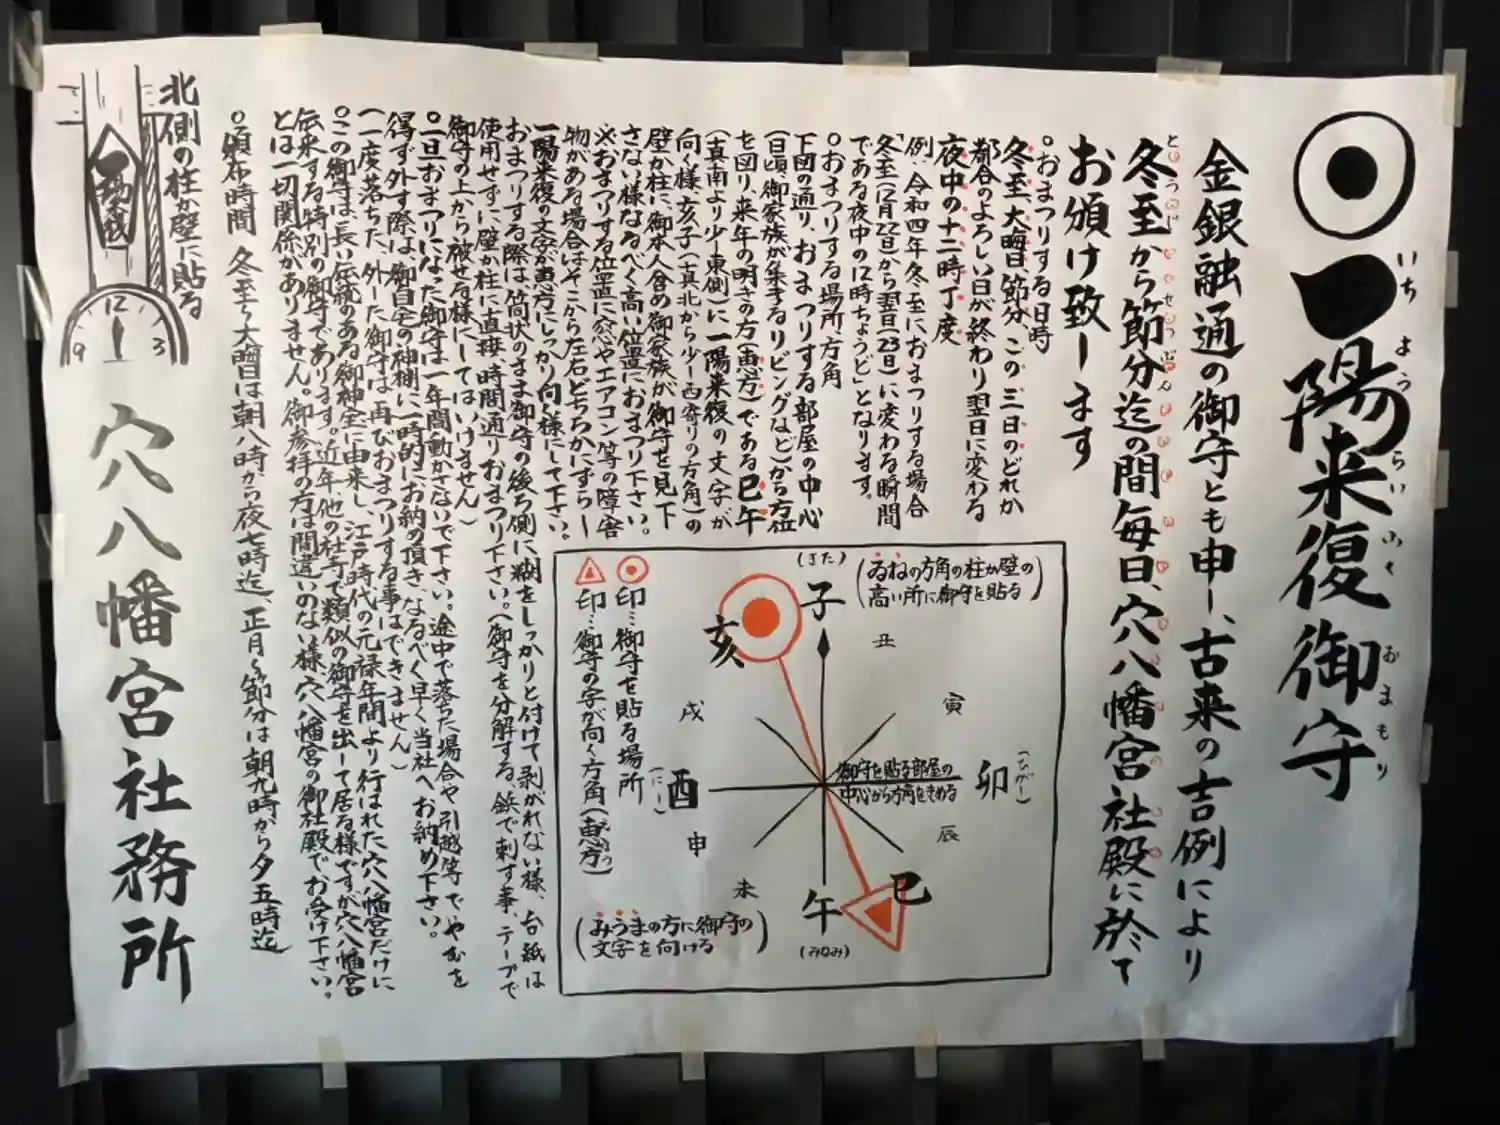 一陽来復御守
いちようらいふくおまもり
金銀融通の御守とも申し、古来の吉例により
冬至から節分迄の間毎日、穴八幡宮社殿に於て
とうじ
せつぶん
お頒け致します
○おまつりする日時
冬至、大晦日、節分、この三日のどれか
都合のよろしい日が終わり翌日に変わる
夜中の十二時丁度
「例」令和四年冬至におまつりする場合
冬至(12月22日)から翌日(23日)に変わる瞬間
である夜中の12時ちょうど」となります。
○おまつりする場所・方角
下図の通り、おまつりする部屋の中心
(日頃、御家族が集まるリビングなど)から方位
を図り、来年の明きの方(恵方)である巳午
(真南より少し東側)に一陽来復の文字が
向く様、亥子(真北から少し西寄りの方角)の
壁か柱に、御本人含め御家族が御守を見下
さない様なるべく高い位置におまつり下さい。
※おまつりする位置に窓やエアコン等の障害
物がある場合はそこから左右どちらかにずらし
一陽来復の文字が恵方にしっかり向く様にして下さい。
おまつりする際は、筒状のまま御守の後ろ側に、糊をしっかりと付けて剥がれない様、台紙は
使用せずに壁か柱に直接、時間通りおまつり下さい。(御守を分解する、鋲で刺す事、テープで
御守の上から被せる様にしてはいけません)
○一旦おまつりになった御守は一年間動かさないで下さい。途中で落ちた場合や引越等でやむを
得ず外す際は、御自宅の神棚に一時的にお納め頂き、なるべく早く当社へお納め下さい。
(一度落ちた、外した御守は再びおまつりする事はできません)
○この御守は、長い伝統のある御神宝に由来し、江戸時代の元禄年間より行はれた穴八幡宮だけに
伝来する特別の御守であります。近年、他の社寺で類似の御守を出して居る様ですが穴八幡宮
とは一切関係がありません。御参拝の方は間違いのない様穴八幡宮の御社殿でお受け下さい。
○頒布時間 冬至〜大晦は朝八時から夜七時迄、正月〜節分は朝九時から夕五時迄
北側の柱か壁に貼る
12
9
3
穴八幡宮社務所
(ゐねの方角の柱か壁の
高い所に御守を貼る)
(きた)
子
丑
寅
卯
(ひがし)
辰
巳
午
(みなみ)
未
申
酉
(にし)
戌
亥
御守を貼る部屋の
中心から方角をきめる
印…御守を貼る場所
印…御守の字が向く方角(恵方)
(みうまの方に御守の
文字を向ける)